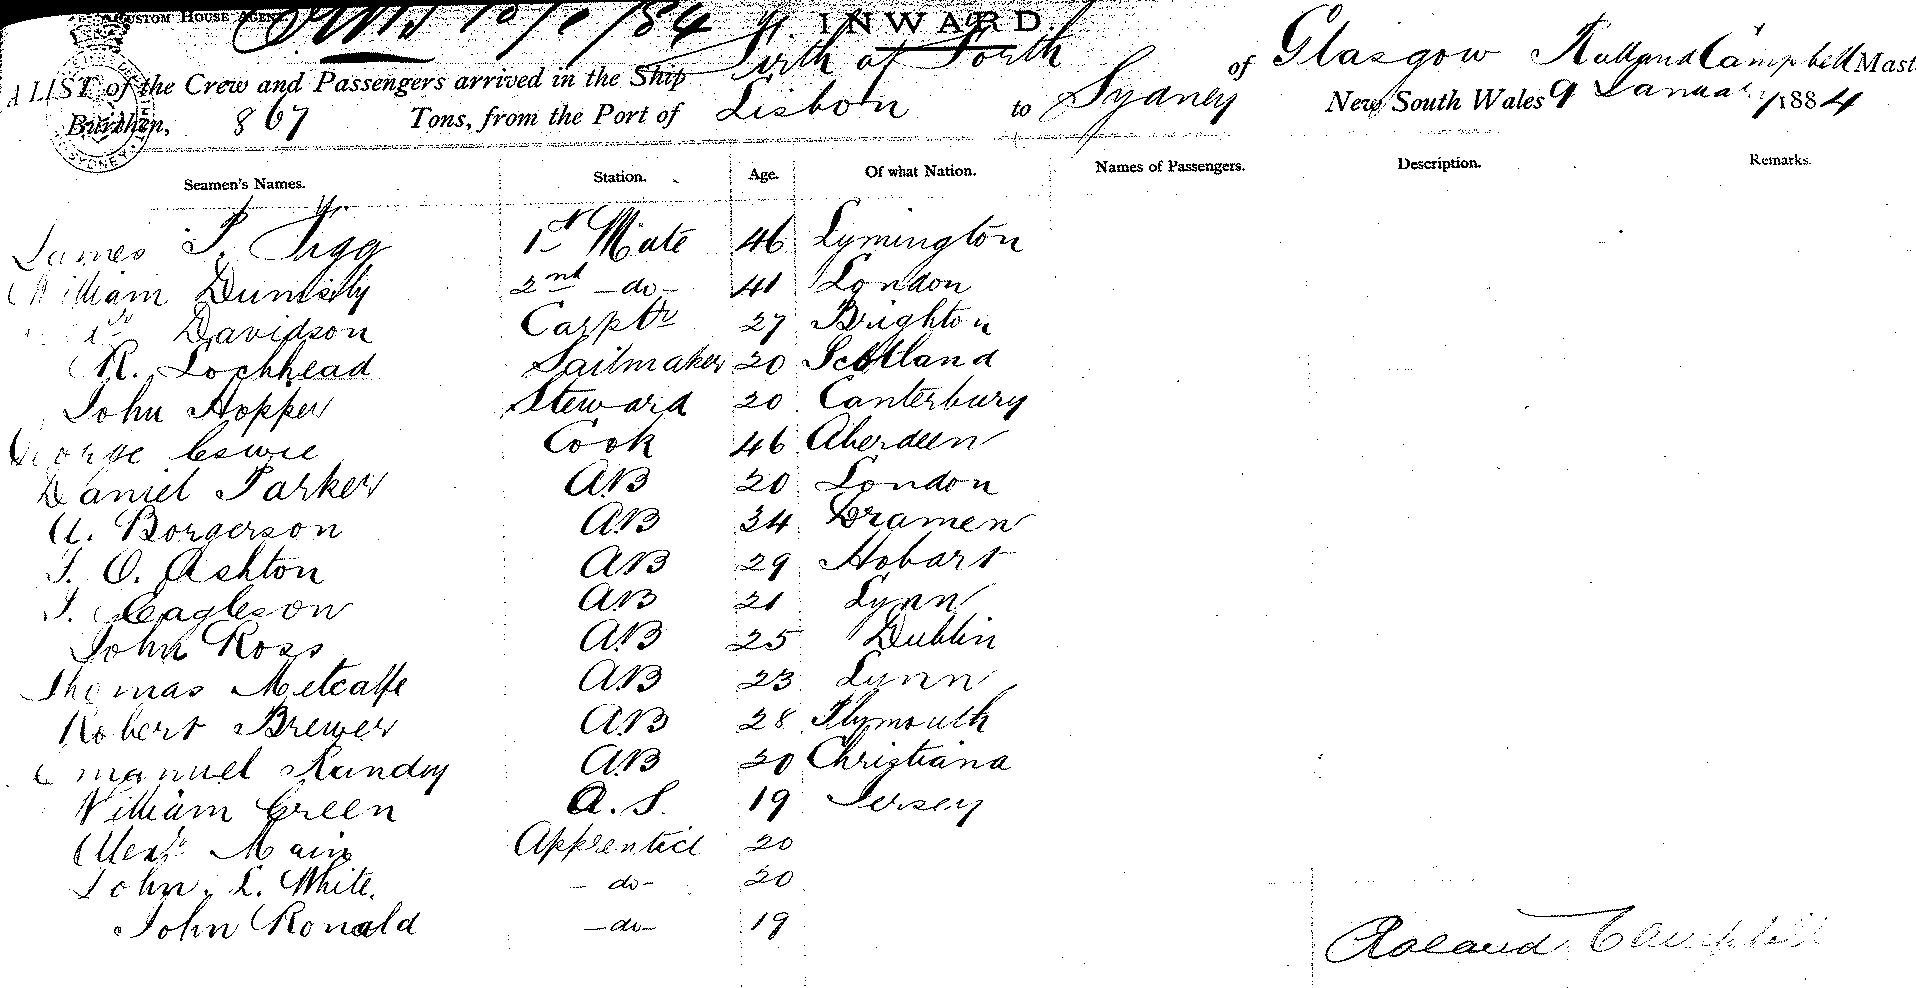 CUSTOM HOUSE AGENT
INWARD.
A LIST of the Crew and Passengers arrived in the Ship Firth of Forth of Glasgow Campbell Mast
Burthen, 867 Tons, from the Port of Lisbon to Sydney New South Wales 9 January 1884
SYDNEY
Seamen's Names. Station. Age. Of what Nation. Names of Passengers. Description. Remarks.
James 1st Mate 46 Lymington
William 2nd -do- 41 London
Davidson Carptr 27 Brighton
R. Lochhead Sailmaker 20 Scotland
John Hopper Steward 20 Canterbury
George Cook 46 Aberdeen
Daniel Parker A.B 20 London
A. Borgerson A.B 34 Dramen
J. O. Ashton A.B 29 Hobart
J. Eagleson A.B 21 Lynn
John Ross A.B 25 Dublin
Thomas Metcalfe A.B 23 Lynn
Robert Brewer A.B 28 Plymouth
Emanuel A.B 20 Christiana
William Green A.S. 19 Jersey
Alexr Main Apprentice 20
John L. White. -do- 20
John Ronald -do- 19
Roland Campbell